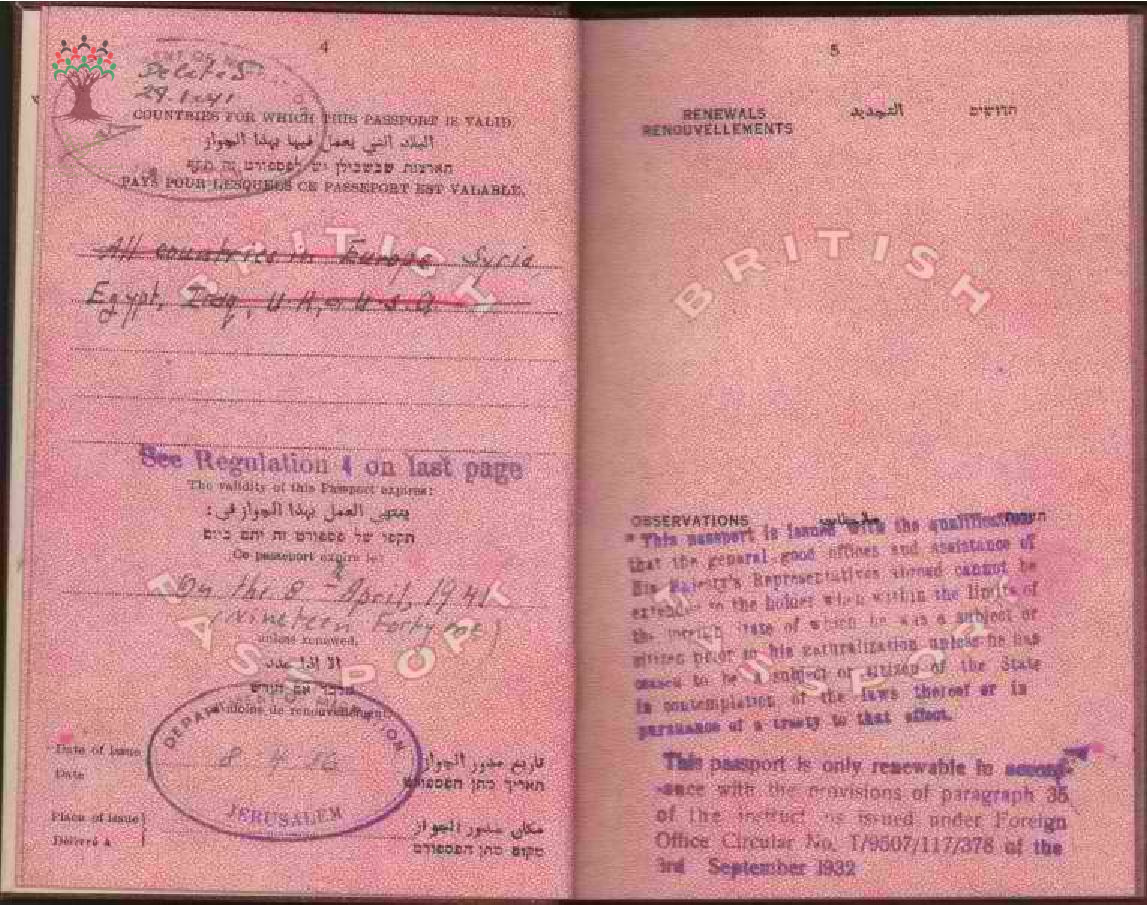 4
Deleted
29.1.41
COUNTRIES FOR WHICH THIS PASSPORT IS VALID.
البلاد التي يعمل فيها بهذا الجواز
הארצות שבשבילן יש לפספורט זה תקף
PAYS POUR LESQUELS CE PASSEPORT EST VALABLE.
All countries in Europe Syria
Egypt, Iraq, U.K, or U.S.A
See Regulation 4 on last page
The validity of this Passport expires:
ينتهي العمل بهذا الجواز في:
תקפו של פספורט זה יתם ביום
Ce passeport expire le:
On the 8 April, 1941
(Nineteen Forty one)
unless renewed.
الا اذا جدد
מלבד אם חודש
à moins de renouvellement
DEPARTMENT OF MIGRATION
8 4 36
JERUSALEM
Date of issue
Date
تاريخ صدور الجواز
תאריך מתן הפספורט
Place of issue
Délivré à
مكان صدور الجواز
מקום מתן הפספורט
BRITISH
PASSPORT
5
RENEWALS التجديد חדושים
RENOUVELLEMENTS
BRITISH
OBSERVATIONS
"This passport is issued with the qualification
that the general good offices and assistance of
His Majesty's Representatives abroad cannot be
extended to the holder when within the limits of
the foreign state of which he was a subject or
citizen prior to his naturalization unless he has
ceased to be a subject or citizen of the State
in contemplation of the laws thereof or in
pursuance of a treaty to that effect.
This passport is only renewable in accord-
-ance with the provisions of paragraph 35
of the issued under Foreign
Office Circular No. T/9507/117/378 of the
3rd September 1932